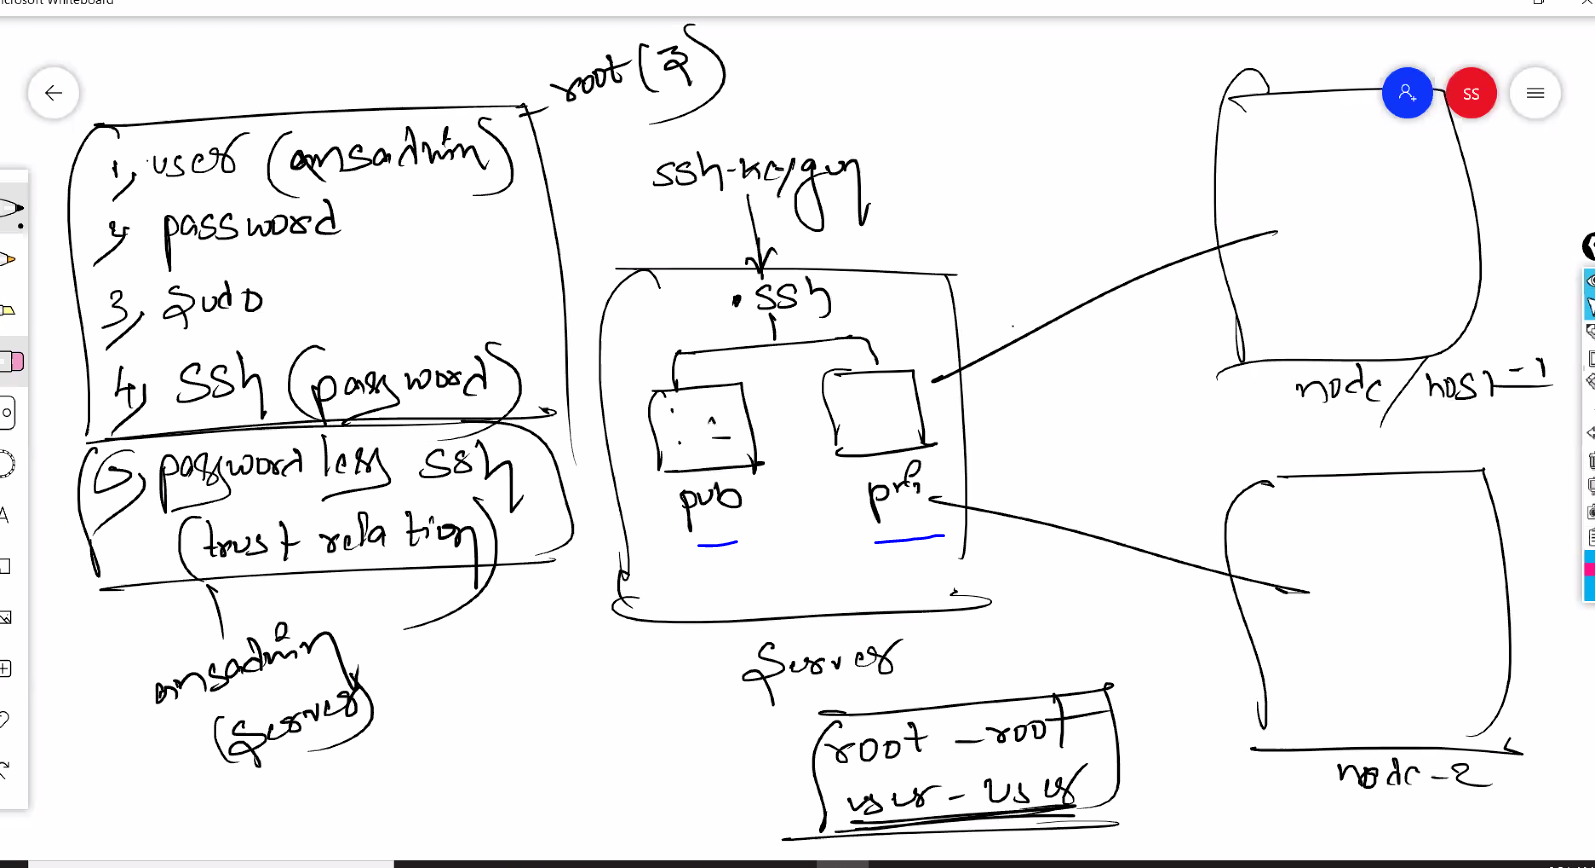 Microsoft Whiteboard
root (3)
SS
1, user (ansadmin)
2, password
3, sudo
4, ssh (password)
5, password less ssh
(trust relation)
ansadmin
(server)
ssh-keygen
.ssh
pub
pri
server
root - root
user - user
node / host-1
node-2